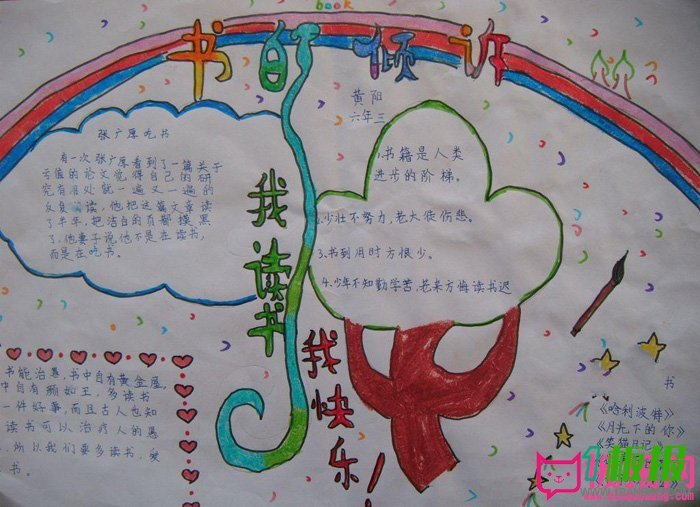 book
书的倾诉
黄阳
六年三
张广厚吃书
有一次张广厚看到了一篇关于
亏值的论文觉得自己的研
究有用处就一遍又一遍的
反复阅读,他把这篇文章读
了半年,把洁白的页都摸黑
了,他妻子说他不是在读书,
而是在吃书。
我读书
我快乐!
1.书籍是人类
进步的阶梯。
2.少壮不努力,老大徒伤悲。
3.书到用时方恨少。
4.少年不知勤学苦,老来方悔读书迟
书能治愚,书中自有黄金屋,
中自有颜如玉,多读书
一件好事,而且古人也知
读书可以治疗人的愚
,所以我们要多读书,爱
书。
书
《哈利波特》
《月光下的你》
《笑猫日记》